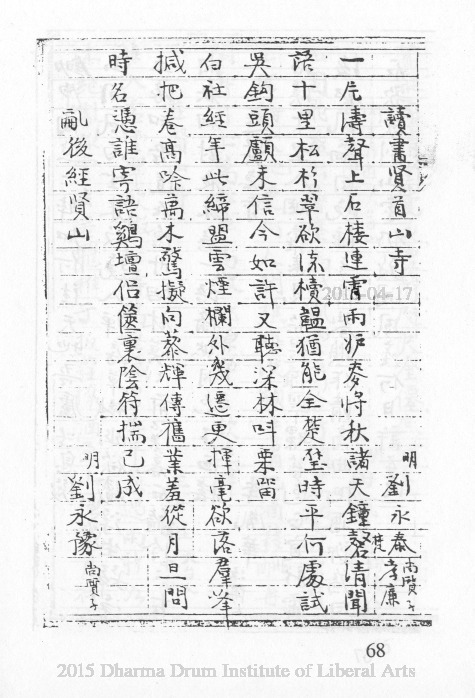 讀書賢首山寺
明 劉永泰 楚孝廉 尚賢子
一片濤聲上石棲連霄雨妒麥將秋諸天鐘磬清聞
落十里松杉翠欲流櫝韞猶能全楚璧時平何處試
吳鈎頭顱未信今如許又聽深林叫栗留
白社經年此締盟雲煙欄外幾遷更揮毫欲落羣峰
撼把卷高吟萬木驚擬向藜輝傳舊業羞從月旦問
時名憑誰寄語鷄壇侶篋裏陰符揣已成
亂後經賢山
明 劉永豫 尚賢子
2015-04-17
68
2015 Dharma Drum Institute of Liberal Arts